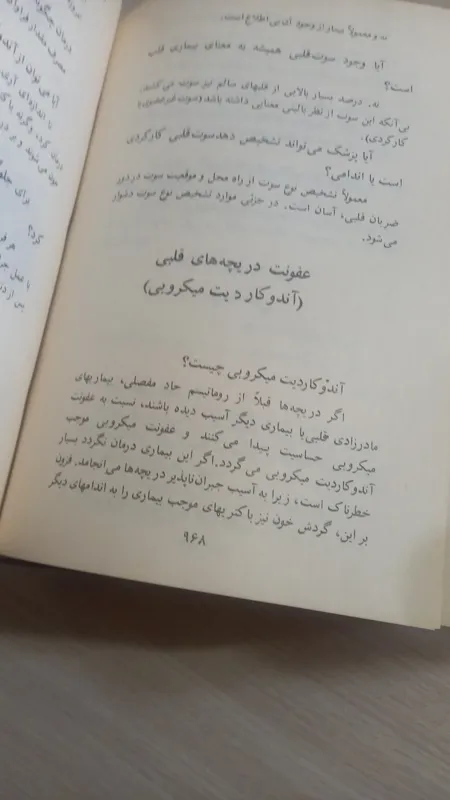 نه و معمولاً بیمار از وجود آن بی‌اطلاع است.
آیا وجود سوت قلبی همیشه به معنای بیماری قلبی
است؟
نه. درصد بسیار بالایی از قلبهای سالم نیز سوت می‌کشند
بی‌آنکه این سوت از نظر بالینی معنایی داشته باشد (سوت غیرعضوی یا
کارکردی).
آیا پزشک می‌تواند تشخیص دهد سوت قلبی کارکردی
است یا اندامی؟
معمولاً تشخیص نوع سوت از راه محل و موقعیت سوت در دور
ضربان قلبی، آسان است. در جزئی موارد تشخیص نوع سوت دشوار
می‌شود.
عفونت دریچه‌های قلبی
(آندوکاردیت میکروبی)
آندوکاردیت میکروبی چیست؟
اگر دریچه‌ها قبلاً از رومانیسم حاد مفصلی، بیماریهای
مادرزادی قلبی یا بیماری دیگر آسیب دیده باشند، نسبت به عفونت
میکروبی حساسیت پیدا می‌کنند و عفونت میکروبی موجب
آندوکاردیت میکروبی می‌گردد. اگر این بیماری درمان نگردد بسیار
خطرناک است، زیرا به آسیب جبران‌ناپذیر دریچه‌ها می‌انجامد. فزون
بر این، گردش خون نیز باکتریهای موجب بیماری را به اندامهای دیگر
۹۶۸
درمان چگونه
مصرف مقدار فراوان
آیا می‌توان از آند
تا اندازه‌ای آری
برای جلو
کرد؟
هر فر